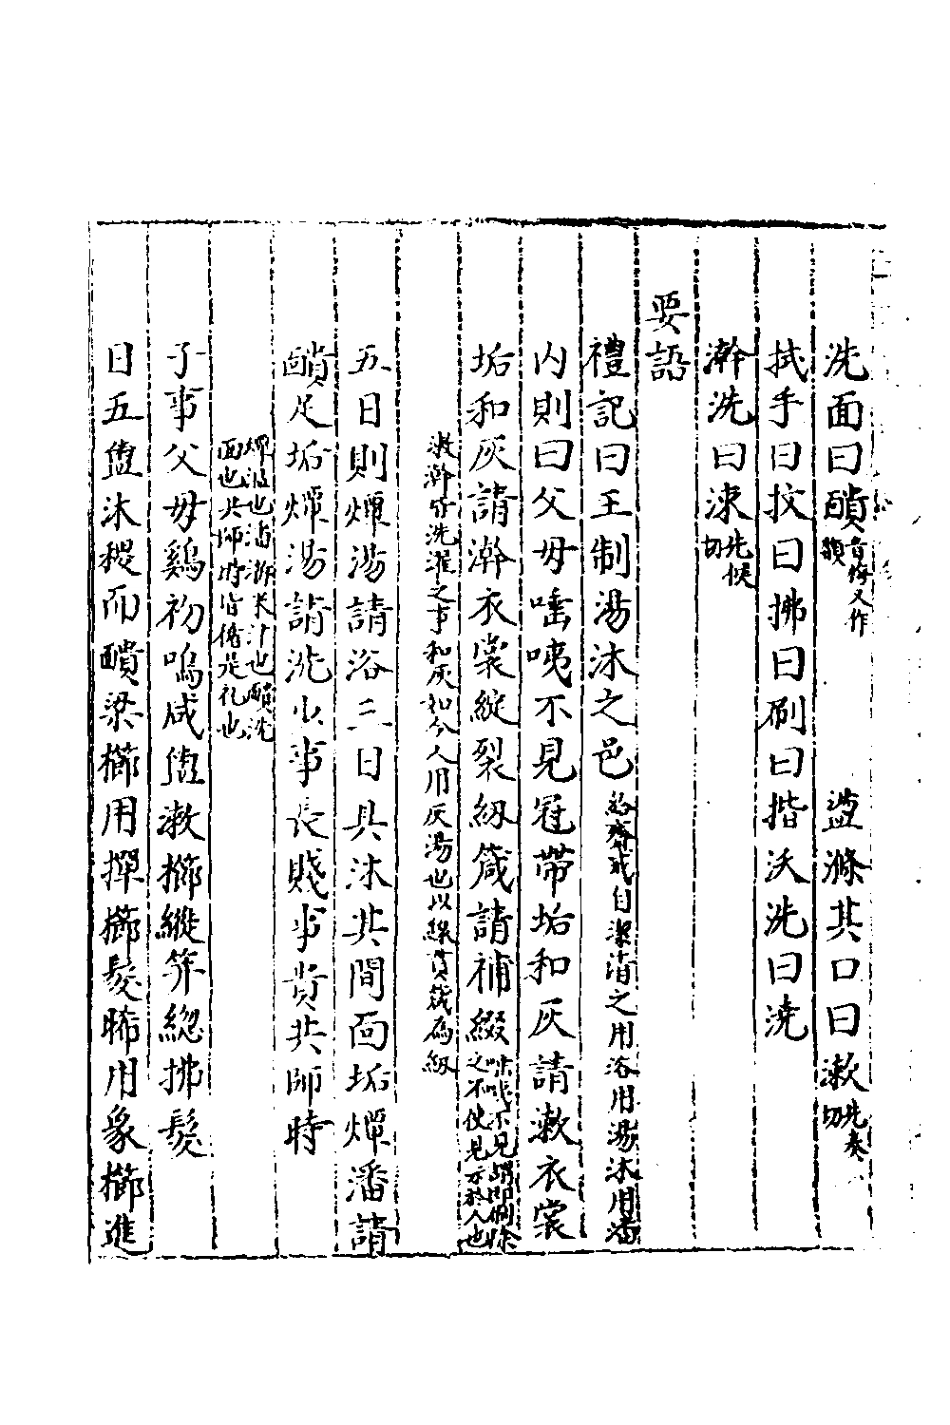 洗面曰靧音悔又作頮 盥滌其口曰漱先奏切
拭手曰抆曰拂曰刷曰揩沃洗曰澆
澣洗曰涑先候切
要語
禮記曰王制湯沐之邑給齋戒自潔清之用浴用湯沐用潘
内則曰父母唾咦不見冠帶垢和灰請漱衣裳
垢和灰請澣衣裳綻裂紉箴請補綴唾咦不見謂即刷除之不使見示於人也
漱澣皆洗濯之事和灰如今人用灰湯也以線貫箴為紉
五日則燂湯請浴三日具沐其間面垢燂潘請
靧足垢燂湯請洗少事長賤事貴共師時
燂溫也潘淅米汁也靧洗面也共師時皆循是礼也
子事父母鷄初鳴咸盥漱櫛縰笄緫拂髮
日五盥沐稷而靧粱櫛用樿櫛髮晞用象櫛進